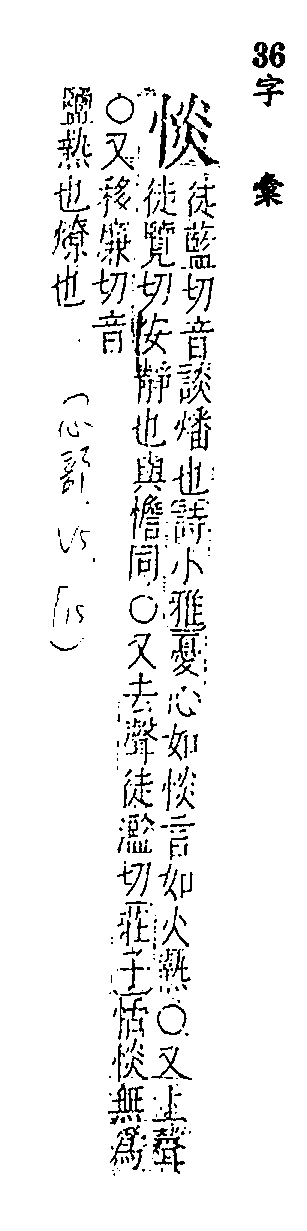 36
字彙
惔
徒藍切音談燔也詩小雅憂心如惔言如火熱○又上聲
徒覽切安靜也與憺同○又去聲徒濫切莊子恬惔無爲
○又移廉切音
鹽熱也燎也
(心部.